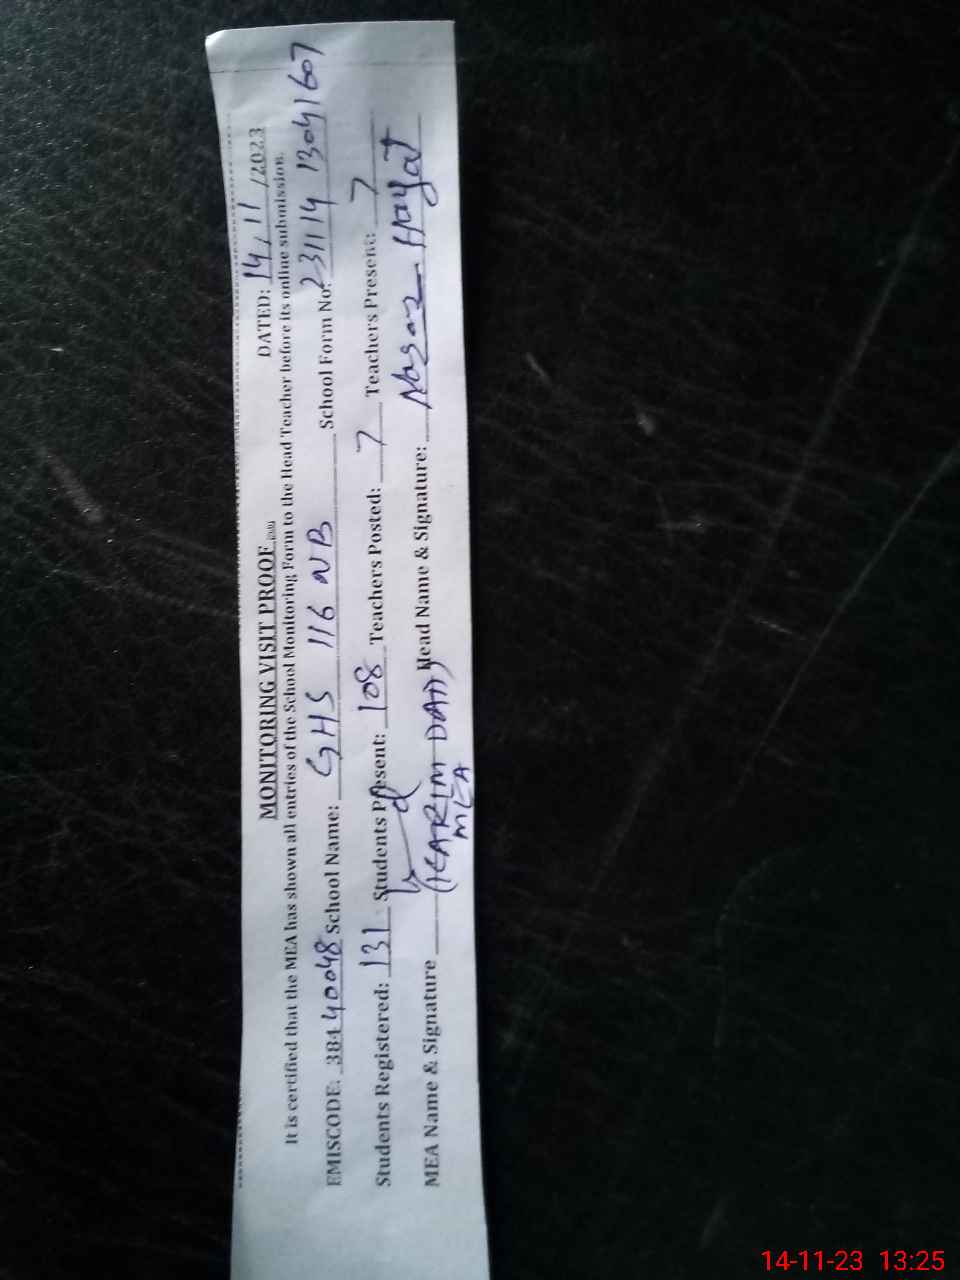 DATED: 14/11/2023
MONITORING VISIT PROOF
It is certified that the MEA has shown all entries of the School Monitoring Form to the Head Teacher before its online submission.
EMISCODE: 38440048 School Name: GHS 116 NB School Form No: 231114 13041607
Students Registered: 131 Students Present: 108 Teachers Posted: 7 Teachers Present: 7
MEA Name & Signature (KARIM DAD) Head Name & Signature: Hayat
MEA
14-11-23 13:25